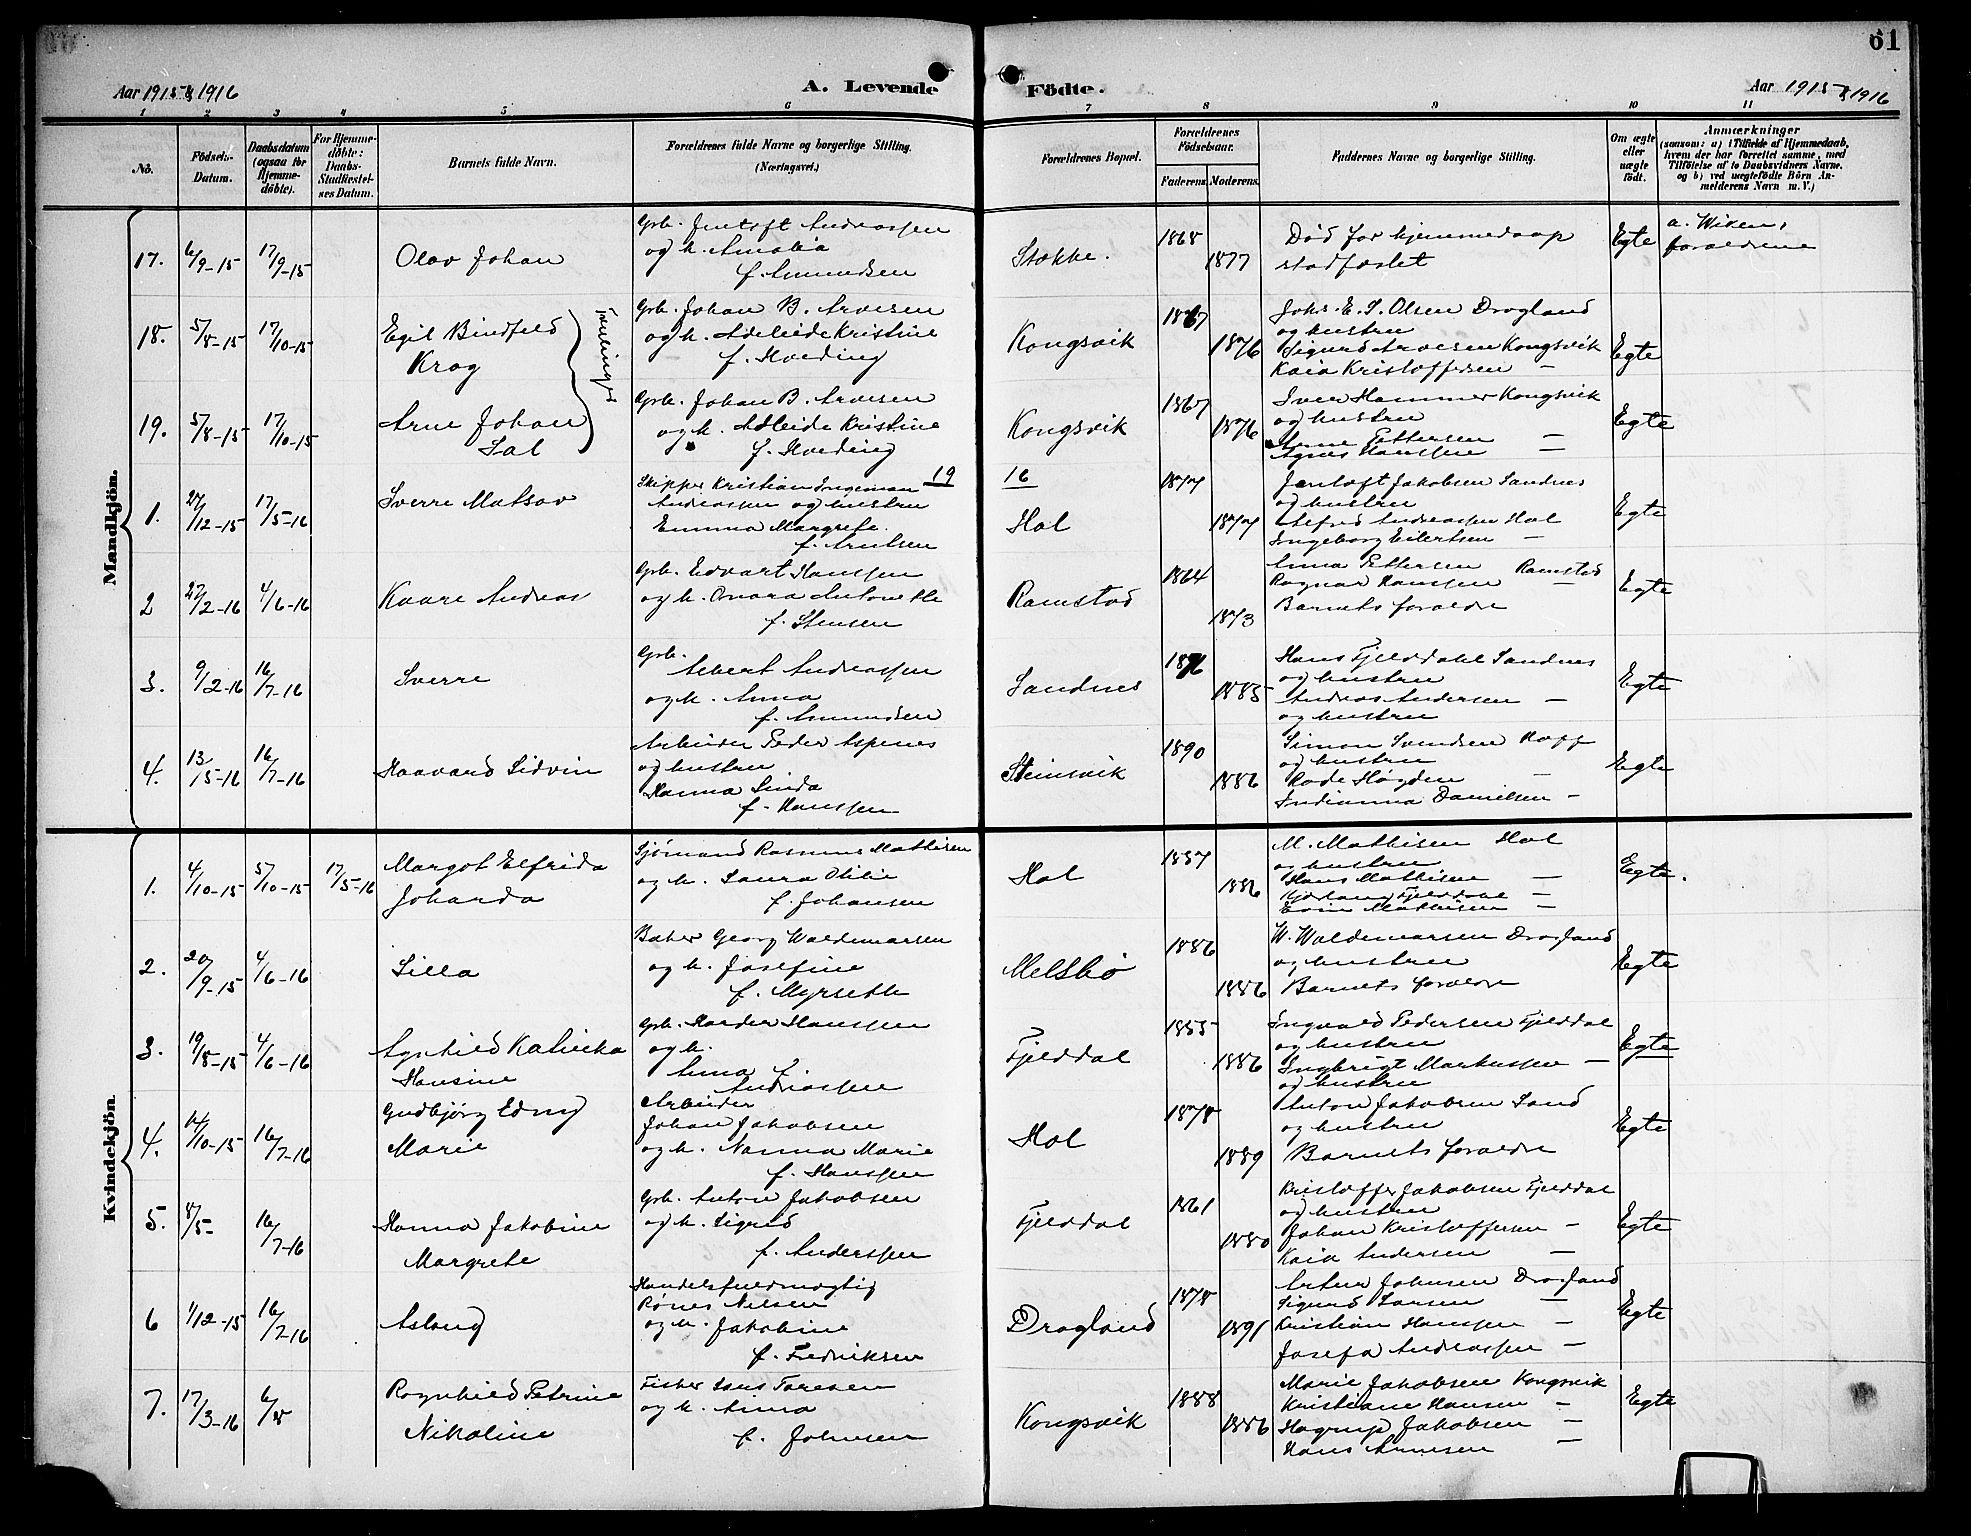 61
Aar 1915 & 1916
A. Levende
Födte.
Aar 1915 & 1916
1 2 3 4 5 6 7 8 9 10 11
No.
Födsels-
Datum.
Daabsdatum
(ogsaa for
Hjemme-
döbte).
For Hjemme-
döbte:
Daabs-
Stadfæstel-
ses Datum.
Barnets fulde Navn.
Forældrenes fulde Navne og borgerlige Stilling.
(Næringsvei.)
Forældrenes Bopæl.
Forældrenes
Födselsaar.
Faderens. Moderens.
Faddernes Navne og borgerlige Stilling.
Om ægte
eller
uægte
födt.
Anmærkninger
(saasom: a) i Tilfælde af Hjemmedaab,
hvem der har forrettet samme, med
Tilföielse af to Daabsvidners Navne.
og b) ved uægtefödte Börn An-
melderens Navn m. V.)
Mandkjön.
17. 6/9-15 17/9-15 Olav Johan
Grb. Jentoft Andreassen
og h. Amalia
f. Amundsen
Stokke. 1868 1877
Död för hjemmedaap
stadfæstet
Egte
a. Wiken,
forældrene
18. 5/8-15 17/10-15 Egil Bindfeld
Krog
Tvillinger
Grb. Johan B. Arvesen
og h. Adeleide Kristine
f. Hveding
Kongsvik 1867 1876
Johs. E. S. Olsen Drogland
og hustru
Sigurd Arvesen Kongsvik
Kaia Kristoffersen -
Egte
19. 5/8-15 17/10-15 Arne Johan
Grb. Johan B. Arvesen
og h. Adleide Kristine
f. Hveding
Kongsvik 1867 1876
Iver Hammer Kongsvik
og hustru
Anne Pettersen -
Agnes Hanssen -
Egte
19 16
1. 27/12-15 17/5-16 Sverre Matsov
Skipper Kristian Ingeman
Andreassen og hustru
Emma Margrete.
f. Arntsen
Hol 1877 1877
Jentoft Jakobsen Sandnes
og hustru
Alfred Andreassen Hol
Ingeborg Eilertsen -
Egte
2 27/2-16 4/6-16 Kaare Andreas
Grb. Edvart Hanssen
og h. Onara Antonette
f. Stensen
Ramstad 1864 1873
Anna Pettersen Ramstad
Ragnar Hanssen -
Barnets forældre
Egte
3. 9/2-16 16/7-16 Sverre
Grb.
Albert Andreassen
og h. Anna
f. Amundsen
Sandnes 1876 1885
Hans Fjelddahl Sandnes
og hustru
Andreas Andersen -
og hustru
Egte
4. 13/15-16 16/7-16 Haavard Lidvin
Arbeider Peder Aspenes
og hustru
Hanna Linda
f. Hanssen
Steinsvik 1890 1886
Simon Svendsen
og hustru
Høgden -
Indianna Danielsen -
Egte
Kvindekjön.
1. 4/10-15 5/10-15 17/5-16 Margot Elfrida
Johanda
Sjömand Rasmus Mathisen
og h. Laura Otilie
f. Johansen
Hol 1887 1886
M. Mathisen Hol
og hustru
Hans Mathisen -
Fjelddal -
Mathisen -
Egte.
2. 20/9-15 4/6-16 Lilla
Baker Georg Waldemarsen
og h. Josefine
f. Myrseth
Melsbö 1886 1886
W. Waldemarsen Drogland
og hustru
Barnets forældre
Egte
3. 19/8-15 4/6-16 Agnhild Kalinka
Hansine
Grb. Hardin Hanssen
og h.
Anna f.
Andreassen
Fjelddal 1885 1886
Ingvald Pedersen Fjelddal
og hustru
Ingbrigt Markussen -
og hustru
Egte
4. 14/10-15 16/7-16 Gudbjörg Edny
Marie
Arbeider
Johan Jakobsen
og h. Nanna Marie
f. Hanssen
Hol 1878 1889
Anton Jakobsen Sand
og hustru
Barnets forældre
Egte
5. 8/5- 16/7-16 Hanna Jakobine
Margrete
Grb. Anton Jakobsen
og h. Sigrid
f. Anderssen
Fjelddal 1861 1880
Kristoffer Jakobsen Fjelddal
og hustru
Johan Kristoffersen -
Kaia Andersen -
Egte
6 1/12-15 16/7-16 Aslaug
Handelsfuldmægtig
Rönes Nilsen
og h. Jakobine
f. Fredriksen
Drogland 1878 1891
Artur Johnsen Drogland
Sigurd Larsen -
Kristian Hanssen -
Josefa Andreassen -
Egte
7. 17/3-16 6/8 Ragnhild Petrine
Nikoline
Fisker Toresen
og h. Anna
f. Johnsen
Kongsvik 1888 1886
Marie Jakobsen Kongsvik
Kristiane Hansen -
Hagrup Jakobsen -
Hans Arnesen -
Egte